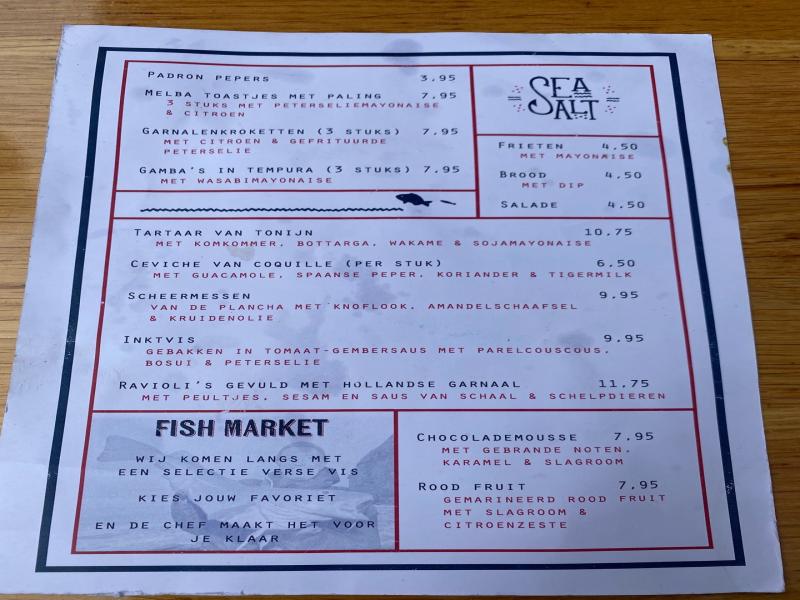 PADRON PEPERS 3,95
MELBA TOASTJES MET PALING 7,95
3 STUKS MET PETERSELIEMAYONAISE
& CITROEN
GARNALENKROKETTEN (3 STUKS) 7,95
MET CITROEN & GEFRITUURDE
PETERSELIE
GAMBA'S IN TEMPURA (3 STUKS) 7,95
MET WASABIMAYONAISE
SEA
SALT
FRIETEN 4,50
MET MAYONAISE
BROOD 4,50
MET DIP
SALADE 4,50
TARTAAR VAN TONIJN 10,75
MET KOMKOMMER, BOTTARGA, WAKAME & SOJAMAYONAISE
CEVICHE VAN COQUILLE (PER STUK) 6,50
MET GUACAMOLE, SPAANSE PEPER, KORIANDER & TIGERMILK
SCHEERMESSEN 9,95
VAN DE PLANCHA MET KNOFLOOK, AMANDELSCHAAFSEL
& KRUIDENOLIE
INKTVIS 9,95
GEBAKKEN IN TOMAAT-GEMBERSAUS MET PARELCOUSCOUS,
BOSUI & PETERSELIE
RAVIOLI'S GEVULD MET HOLLANDSE GARNAAL 11,75
MET PEULTJES, SESAM EN SAUS VAN SCHAAL & SCHELPDIEREN
FISH MARKET
WIJ KOMEN LANGS MET
EEN SELECTIE VERSE VIS
KIES JOUW FAVORIET
EN DE CHEF MAAKT HET VOOR
JE KLAAR
CHOCOLADEMOUSSE 7,95
MET GEBRANDE NOTEN,
KARAMEL & SLAGROOM
ROOD FRUIT 7,95
GEMARINEERD ROOD FRUIT
MET SLAGROOM &
CITROENZESTE